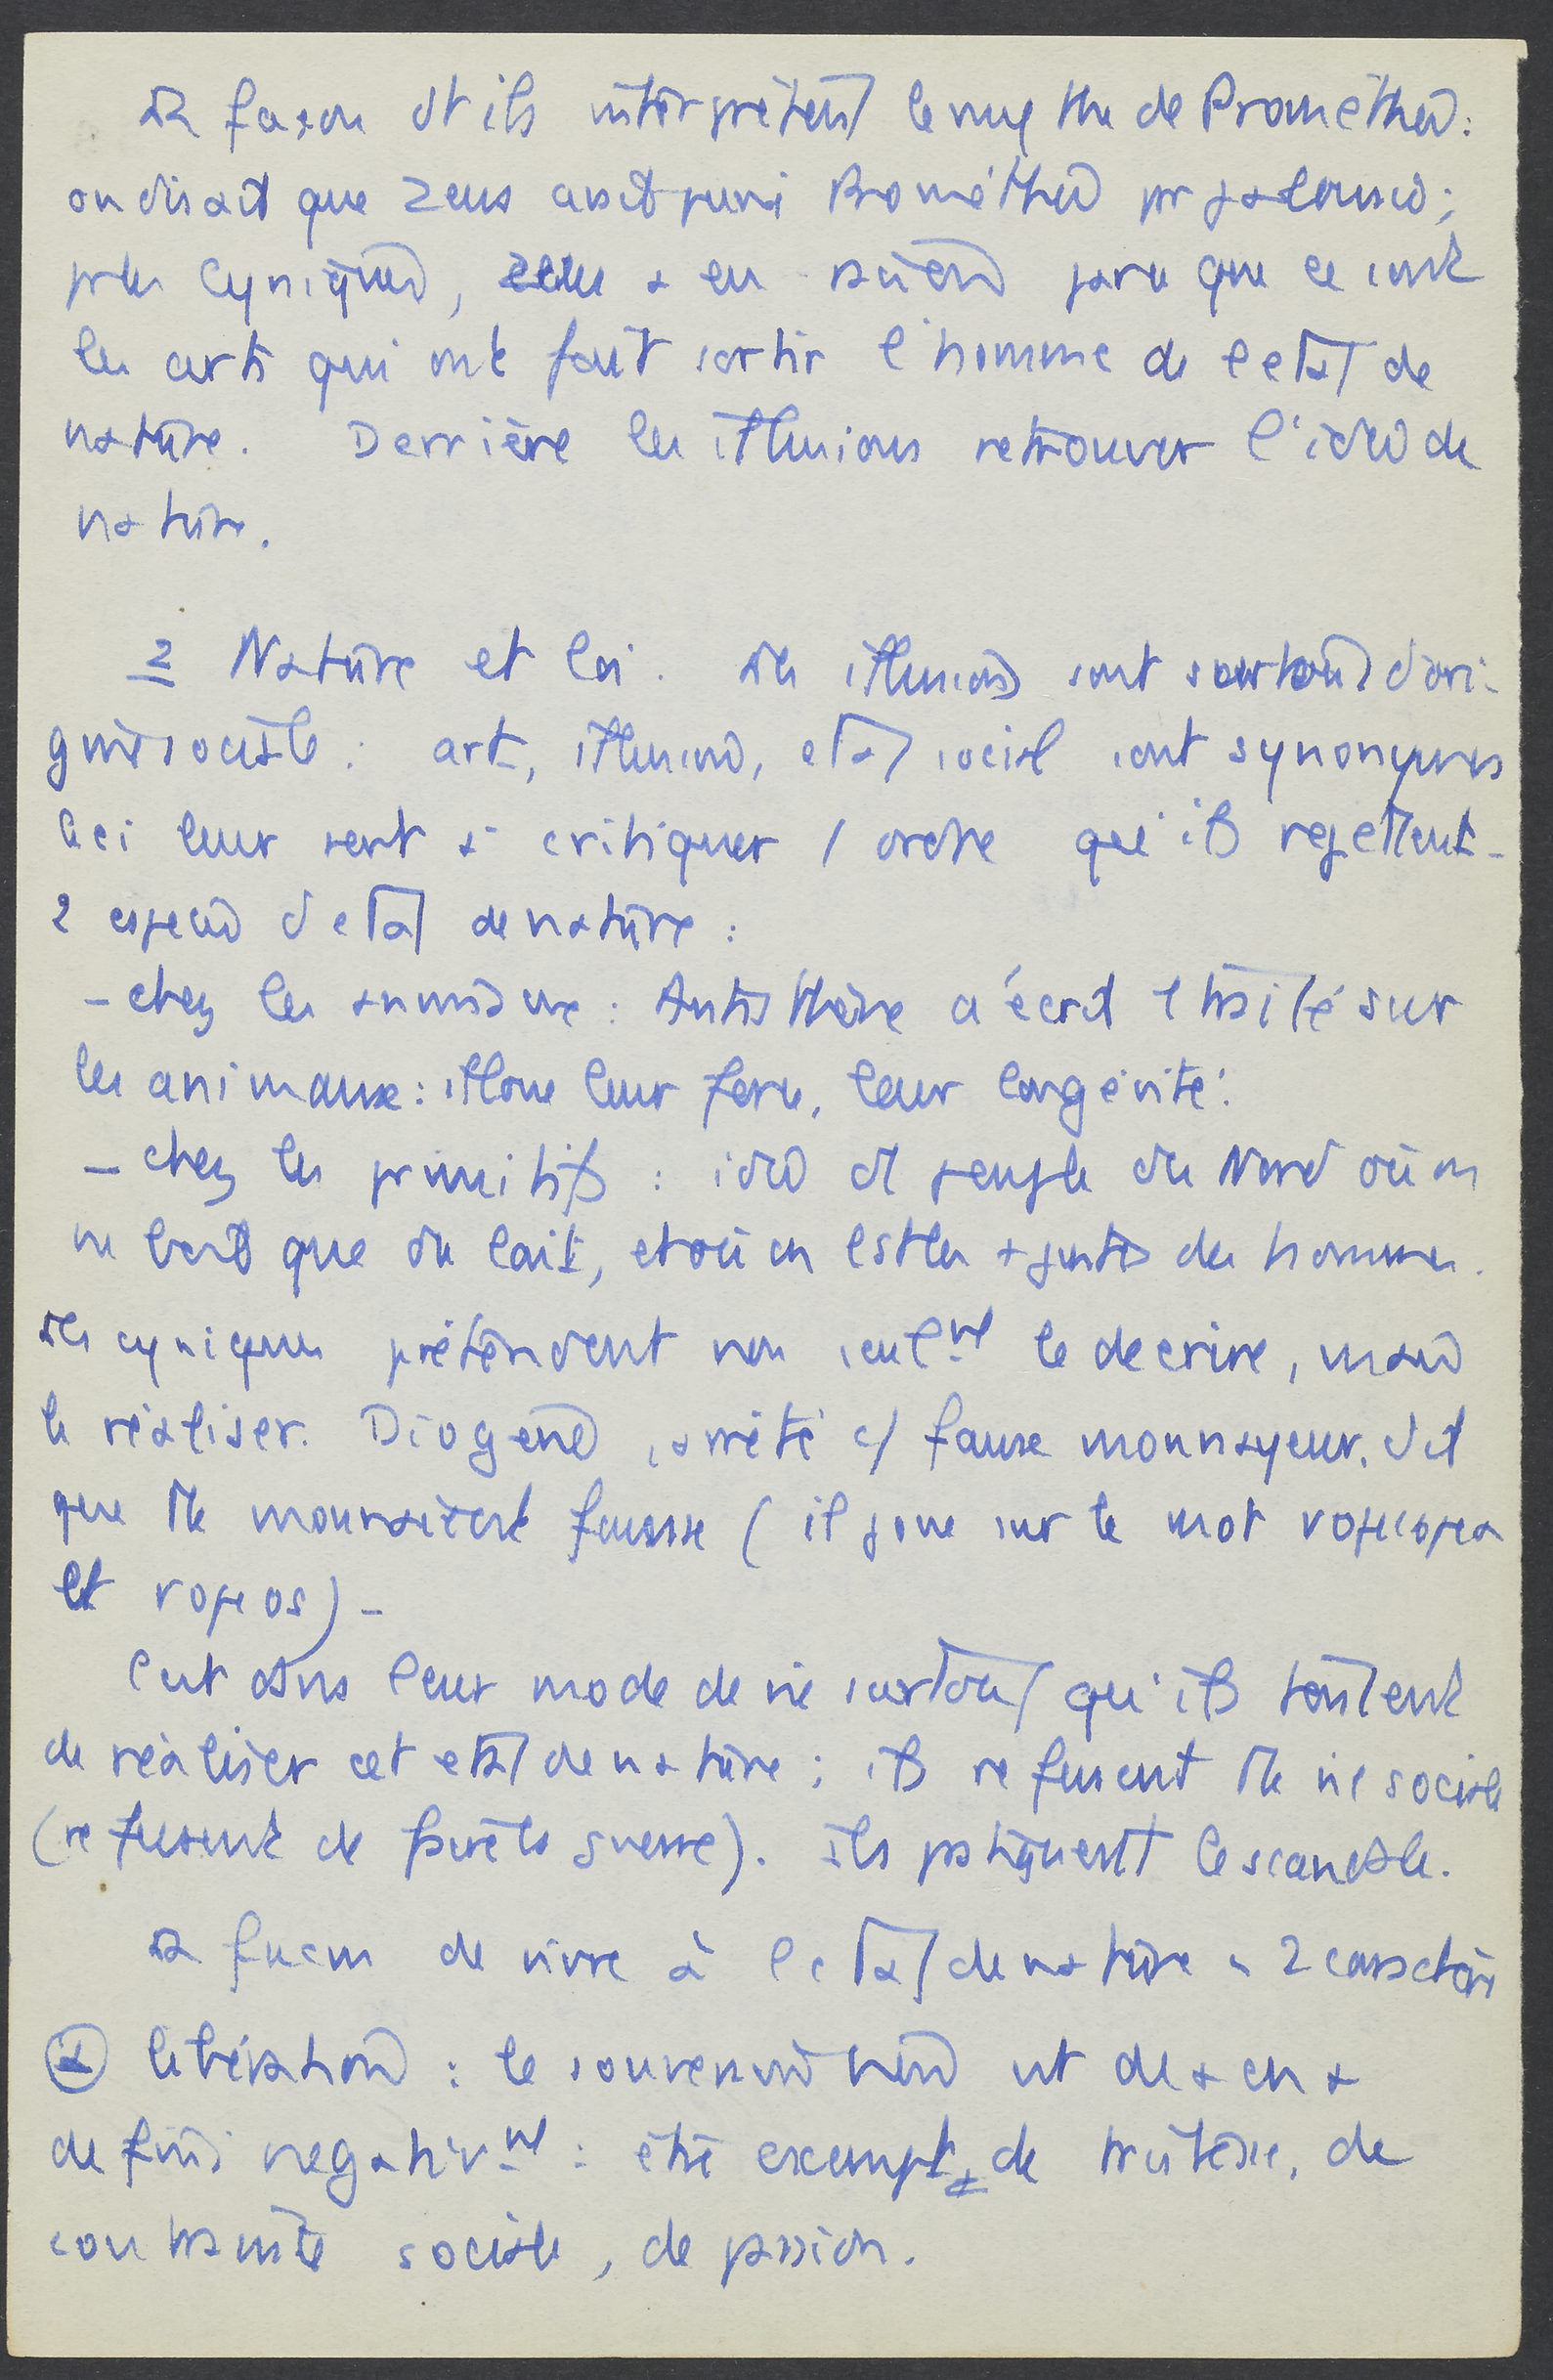 La façon dt ils interprètent le mythe de Prométhée :
on disait que Zeus avait puni Prométhée pr jalousie ;
pr les Cyniques, Zeus a eu raison parce que ce sont
les arts qui ont fait sortir l'homme de l'etat de
nature. Derrière les illusions retrouver l'idée de
nature.
2 Nature et loi. Les illusions sont surtout d'ori-
gine sociale : art, illusion, etat social sont synonymes
Ceci leur sert à critiquer l'ordre qu'ils rejettent -
2 especes d'etat de nature :
- chez les animaux : Antisthène a écrit 1 traité sur
les animaux : il loue leur force, leur longévité.
- chez les primitifs : idée d'1 peuple du Nord où on
ne boit que du lait, et où on est les + justes des hommes.
Les cyniques prétendent non seulmt le decrire, mais
le réaliser. Diogène, arrêté c/ faux monnayeur, dit
que tte monnaie est fausse (il joue sur le mot νομισμα
et νομος) -
C'est dans leur mode de vie surtout qu'ils tentent
de réaliser cet etat de nature ; ils refusent tte vie sociale
(refusent de faire la guerre). Ils pratiquent le scandale.
La façon de vivre à l'etat de nature a 2 caractères
α liberation : le souverain bien est de + en +
defini negativmt : être exempt de tristesse, de
contrainte sociale, de passion.